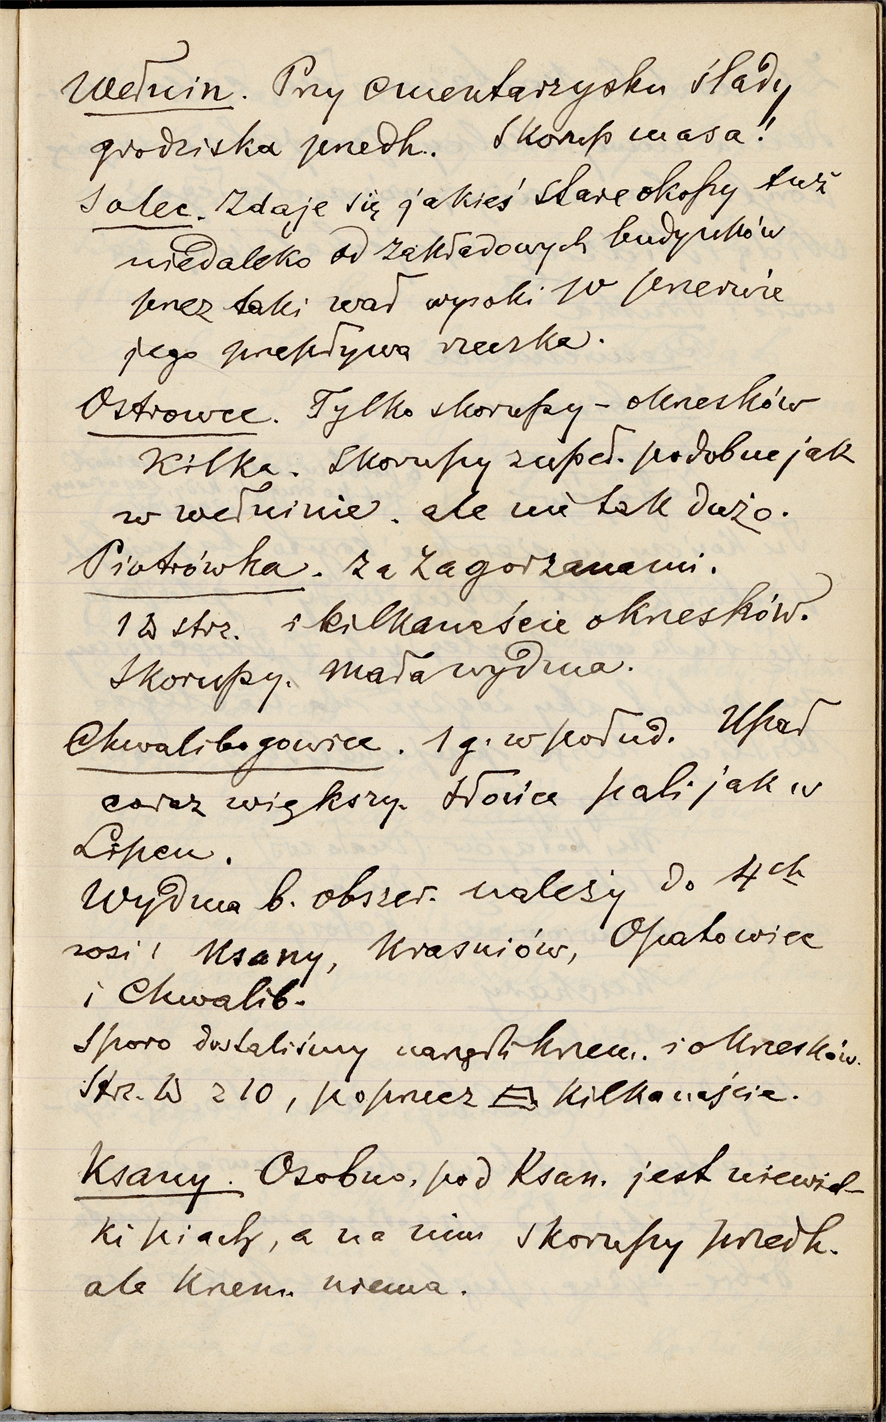 Wełnin. Przy cmentarzysku ślady
grodziska przedh. Skorup masa!
Solec. Zdaje się jakieś stare okopy tuż
niedaleko od zakładowych budynków
przez taki wał wysoki w przerwie
jego przepływa rzeczka.
Ostrowce. Tylko skorupy - okrzesków
kilka. Skorupy zupeł. podobne jak
w wełninie. ale nie tak dużo.
Piotrówka. za Zagorzanami.
12 strz. i kilkanaście okrzesków.
Skorupy. mała wydma.
Chwalibogowice. 1 g. w połud. Upał
coraz większy. słońce pali jak w
Lipcu.
Wydma b. obszer. należy do 4ch
wsi! Ksany, Krasniów, Opatowiec
i Chwalib.
Sporo dostaliśmy narzędzi krzem. i okrzesków.
Strz. z 10, poprzecz kilkanaście.
Ksany. Osobno, pod Ksan. jest niewiel-
ki piach, a na nim skorupy przedh.
ale krzem. niema.